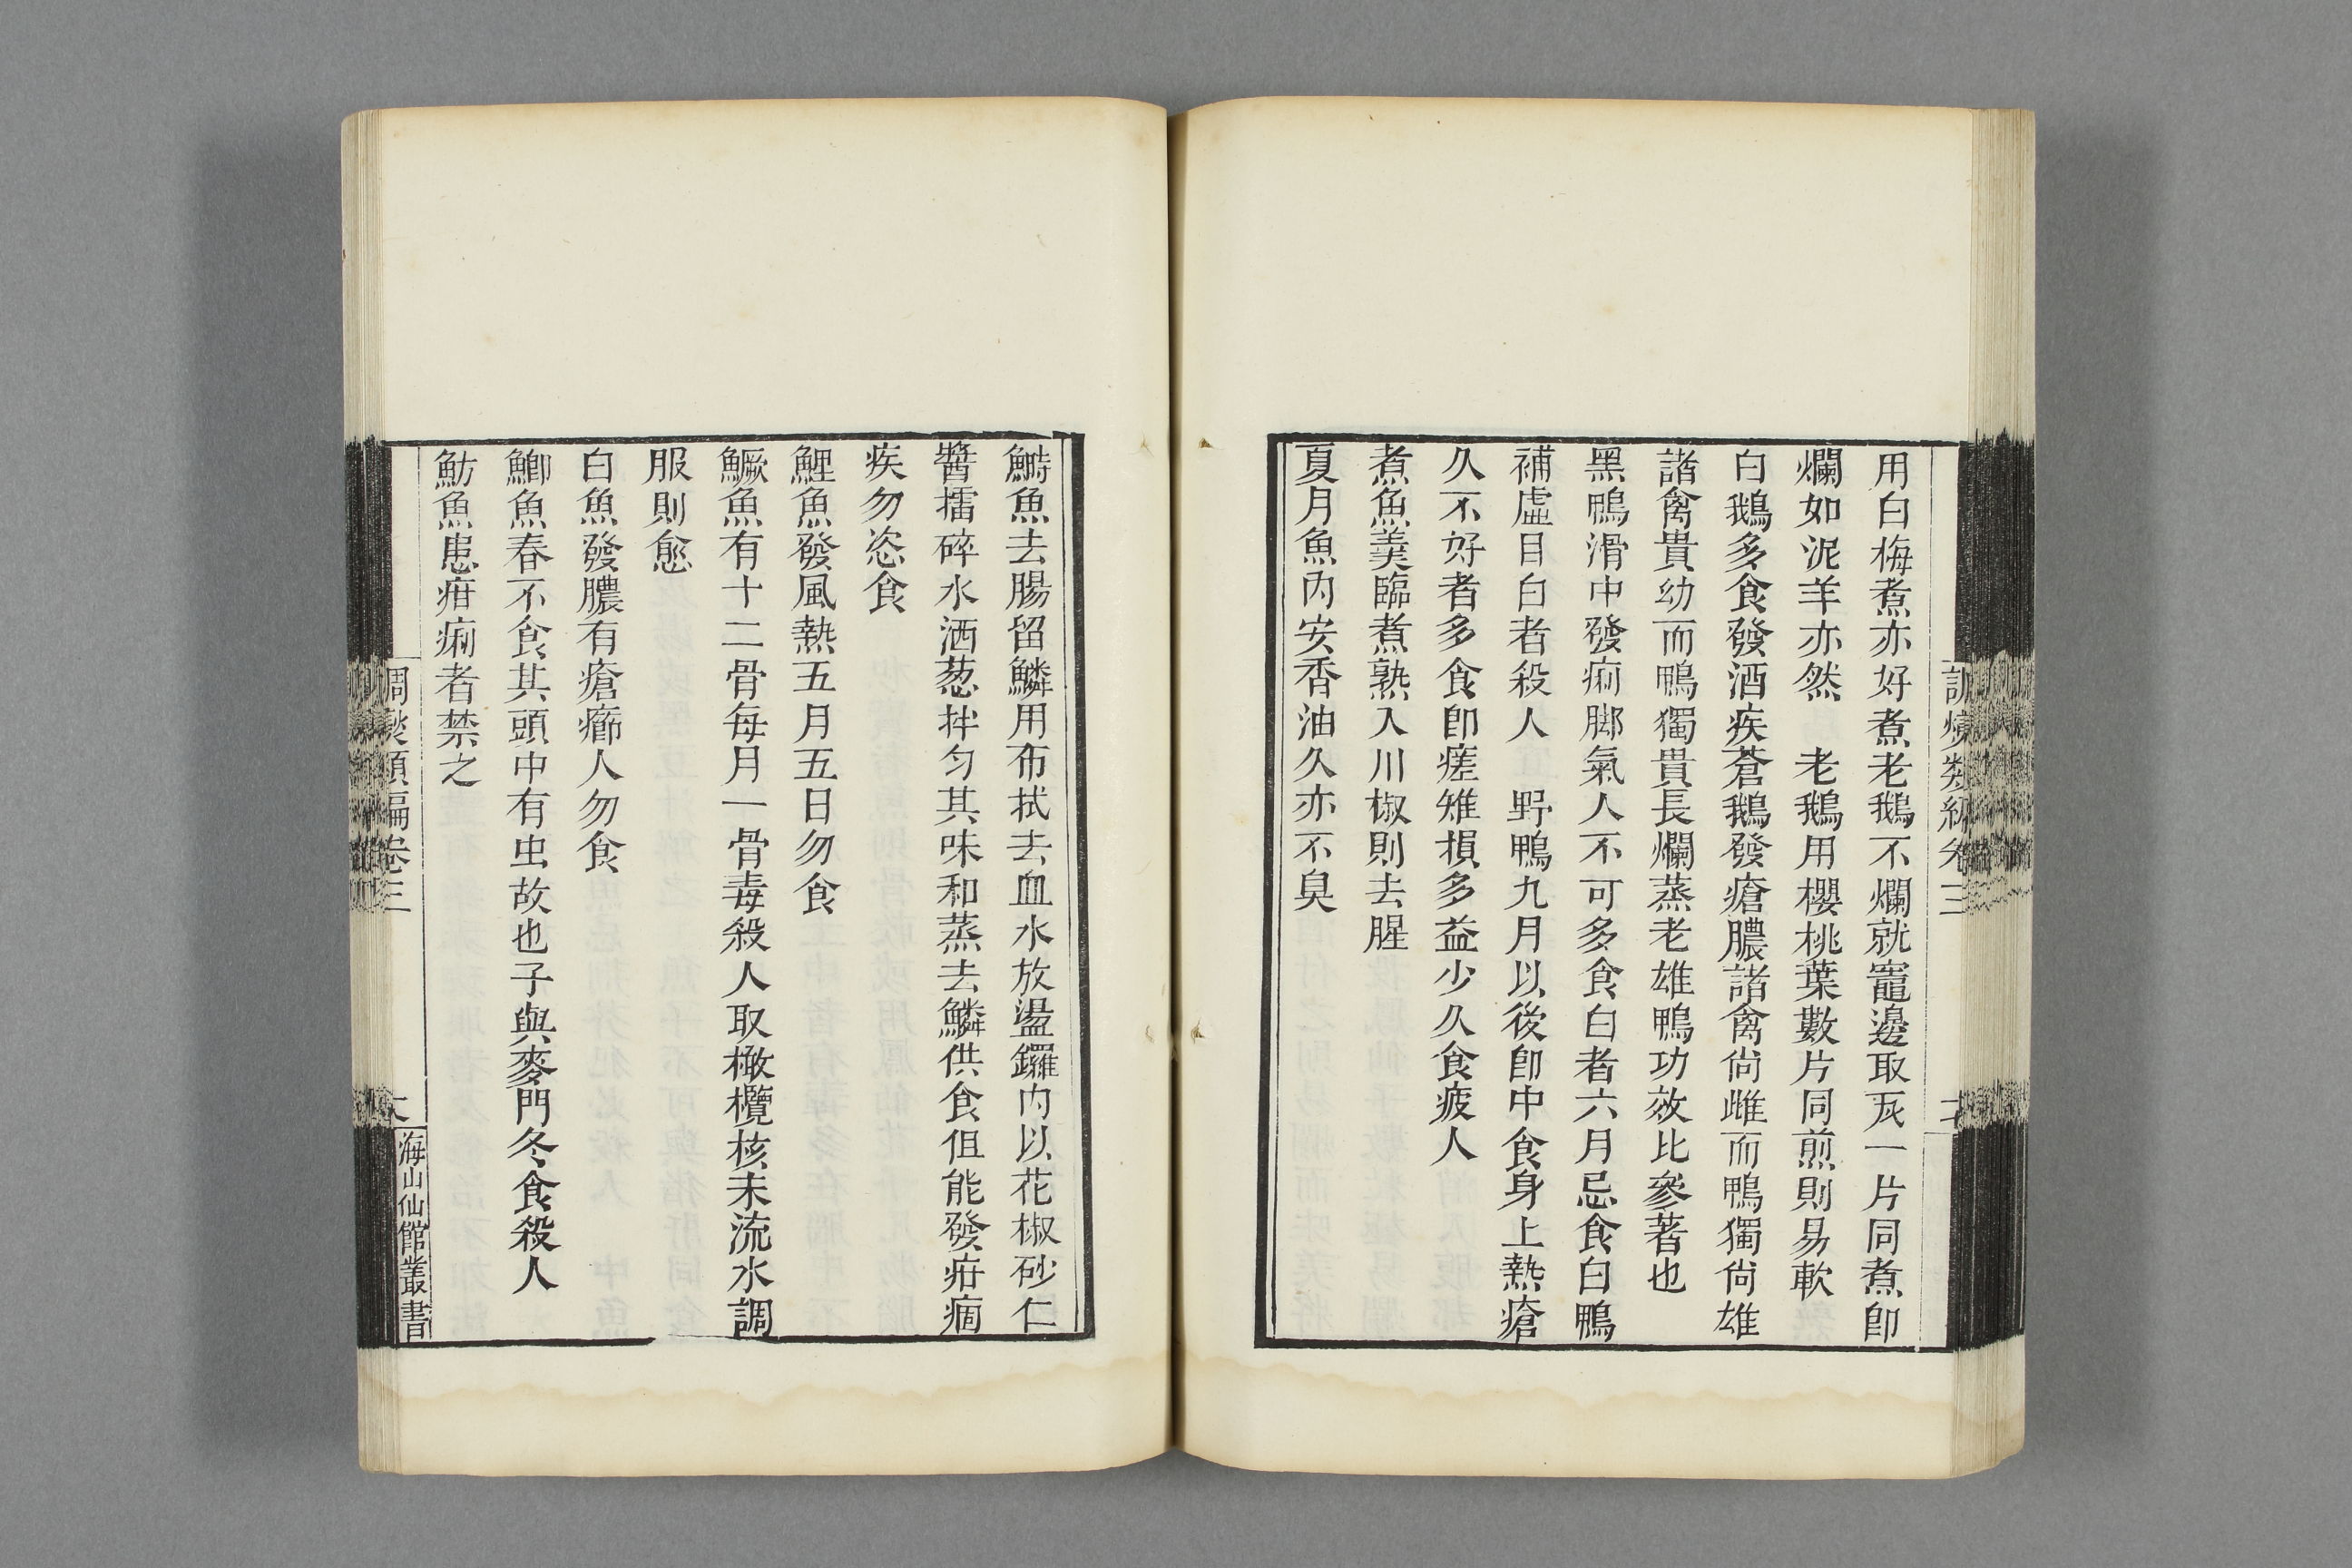 用白梅煮亦好煮老鵝不爛就竈邊取瓦一片同煮卽
爛如泥羊亦然　老鵝用櫻桃葉數片同煎則易軟
白鵝多食發酒疾蒼鵝發瘡膿諸禽尙雌而鴨獨尙雄
諸禽貴幼而鴨獨貴長爛蒸老雄鴨功效比參蓍也
黑鴨滑中發痢腳氣人不可多食白者六月忌食白鴨
補虛目白者殺人　野鴨九月以後卽中食身上熱瘡
久不好者多食卽瘥雉損多益少久食疲人
煮魚羹臨煮熟入川椒則去腥
夏月魚內安香油久亦不臭
鰣魚去腸留鱗用布拭去血水放盪鑼內以花椒砂仁
醬擂碎水酒葱拌匀其味和蒸去鱗供食但能發疳痼
疾勿恣食
鯉魚發風熱五月五日勿食
鱖魚有十二骨每月一骨毒殺人取橄欖核末流水調
服則愈
白魚發膿有瘡癤人勿食
鯽魚春不食其頭中有虫故也子與麥門冬食殺人
魴魚患疳痢者禁之
調燮類編卷三
海山仙館叢書